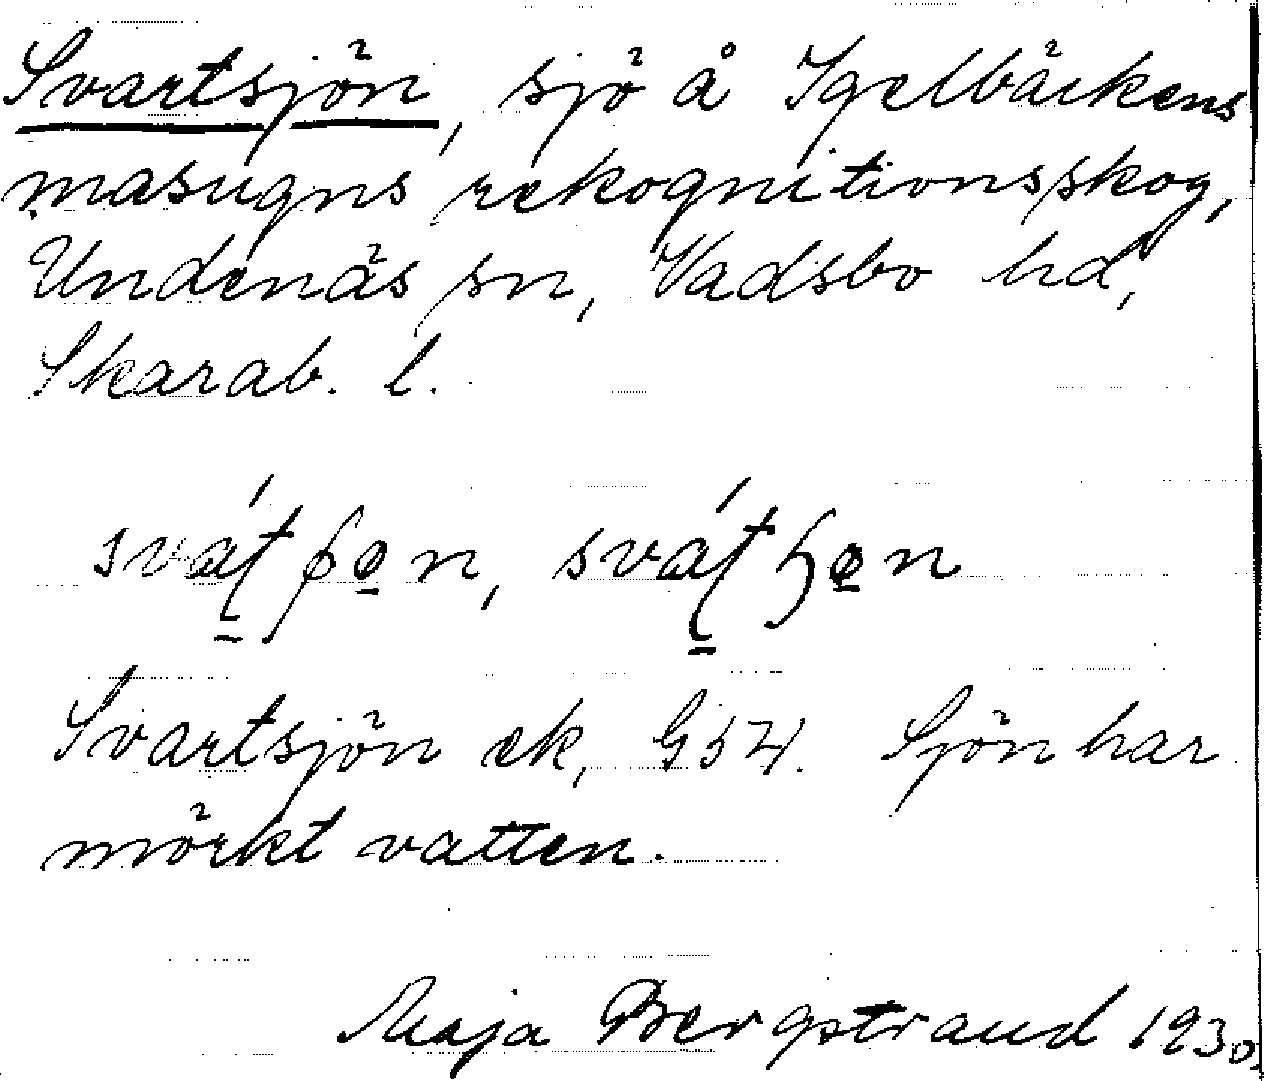 Svartsjön, sjö å Igelbäckens
masugns rekognitionsskog,
Undenäs sn, Vadsbo hd,
Skarab. l.
Svartsjön ek, G54. Sjön har
mörkt vatten.
Maja Bergstrand 1930.